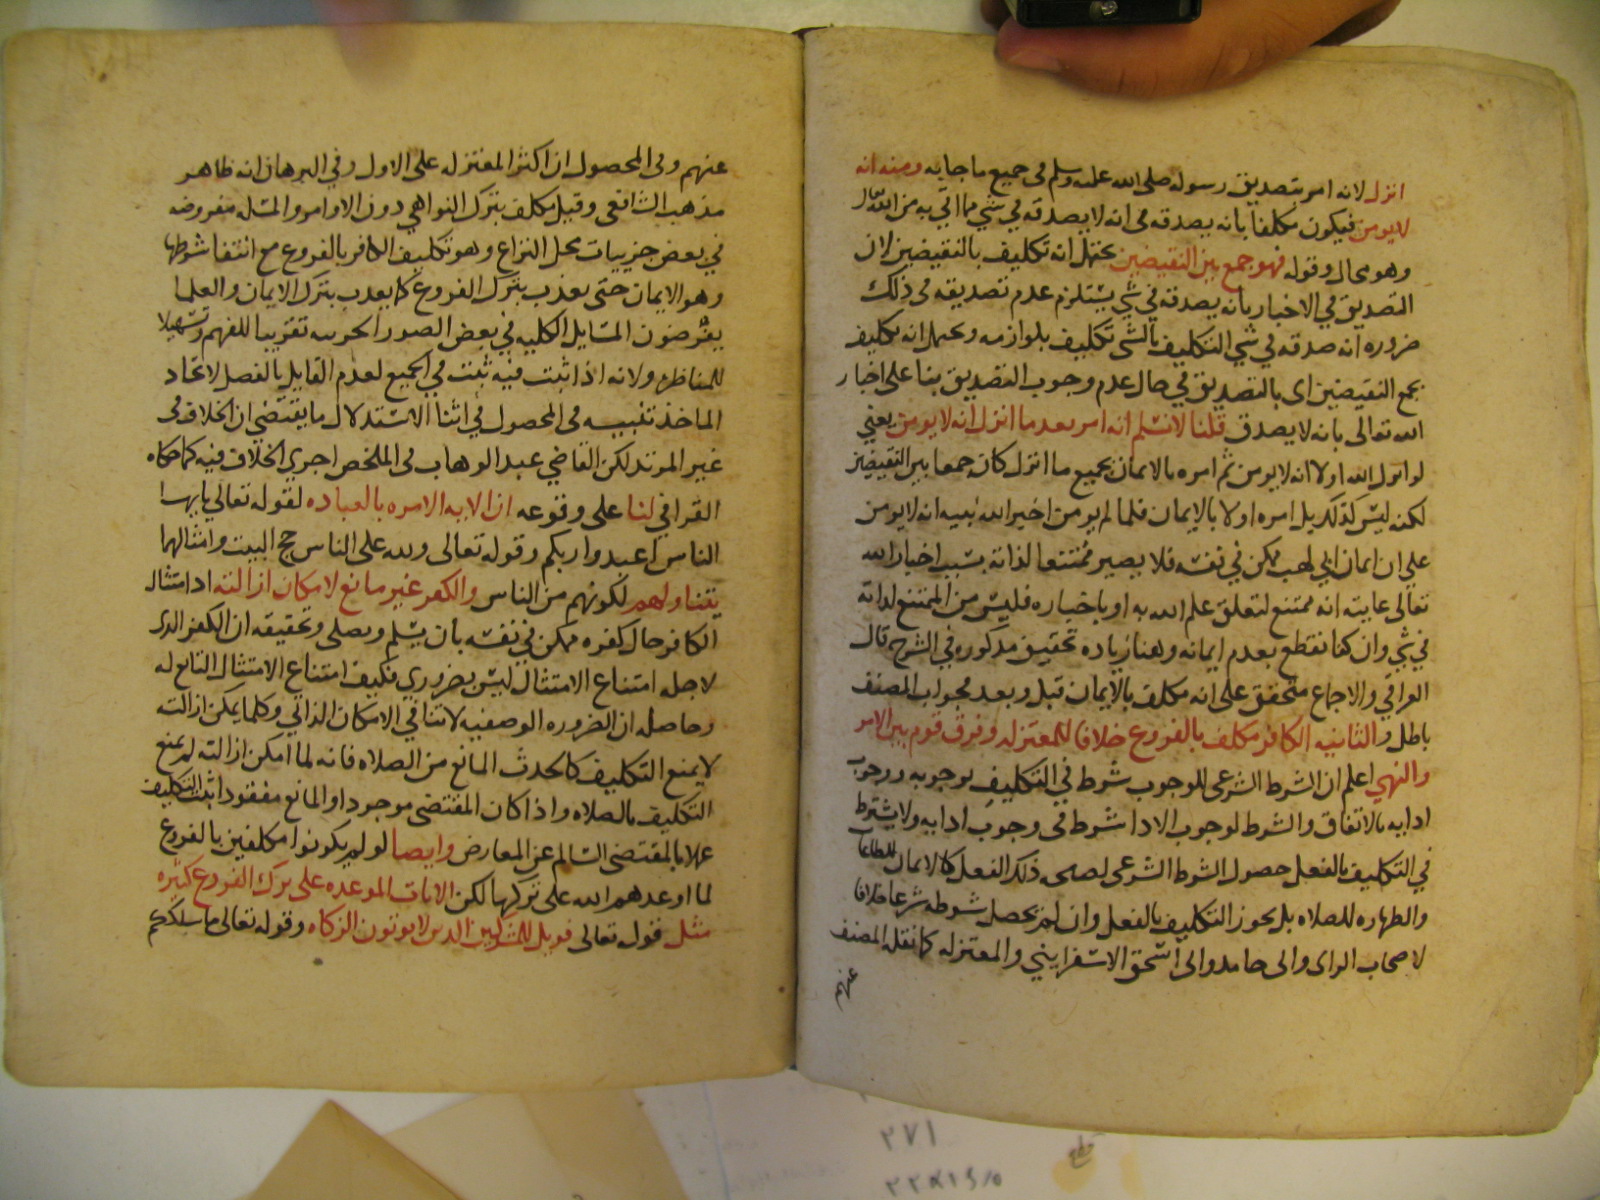 انزل لانه امر بتصديق رسوله صلى الله عليه وسلم في جميع ما جا به ومنه انه
لا يومن فيكون مكلفا بانه يصدقه في انه لا يصدقه في شي مما اتي به من الله تعالى
وهو محال وقوله فهو جمع بين النقيضين يحتمل انه تكليف بالنقيضين لان
التصديق في الاخبار بانه يصدقه في شي يستلزم عدم تصديقه في ذلك
ضروره انه صدقه في شي التكليف بالشي تكليف بلوازمه ويحتمل انه تكليف
بجمع النقيضين اى بالتصديق في حال عدم وجوب التصديق بنا على اخبار
الله تعالى بانه لا يصدق قلنا لا نسلم انه امر بعد ما انزل انه لا يومن يعني
لو انزل الله اولا انه لا يومن ثم امره بالايمان بجميع ما انزل كان جمعا بين النقيضين
لكنه ليس كذلك بل امره اولا بالايمان فلما لم يومن اخبر الله نبيه انه لا يومن
على ان ايمان ابي لهب ممكن في نفسه فلا يصير ممتنعا لذاته بسبب اخبار الله
تعالى غايته انه ممتنع لتعلق علم الله به او باخباره فليس من الممتنع لذاته
في شي وان كنا نقطع بعدم ايمانه وهنا زياده تحقيق مذكوره في الشرح قال
العراقي والاجماع متحقق على انه مكلف بالايمان قبل وبعد فجواب المصنف
باطل والثانيه الكافر مكلف بالفروع خلافا للمعتزله وفرق قوم بين الامر
والنهي اعلم ان الشرط الشرعى للوجوب شرط في التكليف بوجوبه ووجوب
ادايه بالاتفاق والشرط لوجوب الادا شرط في وجوب ادايه ولا يشترط
في التكليف بالفعل حصول الشرط الشرعى لصحه ذلك الفعل كالايمان للطاعات
والطهاره للصلاه بل يجوز التكليف بالفعل وان لم يحصل شرطه شرعا خلافا
لاصحاب الراى والى حامد والى اسحق الاسفرايني والمعتزله كما نقله المصنف
عنهم
عنهم وفى المحصول ان اكثر المعتزله على الاول وفي البرهان انه ظاهر
مذهب الشافعى وقيل مكلف بترك النواهي دون الاوامر والمسله مفروضه
في بعض جزييات محل النزاع وهو تكليف الكافر بالفروع مع انتفا شرطها
وهو الايمان حتى يعذب بترك الفروع كما يعذب بترك الايمان والعلما
يفرضون المسايل الكليه في بعض الصور الجزييه تقريبا للفهم وتسهيلا
للمناظره ولانه اذا ثبت فيه ثبت في الجميع لعدم القايل بالفصل لاتحاد
الماخذ تنبيه في المحصول في اثنا الاستدلال ما يقتضي ان الخلاف في
غير المرتد لكن القاضي عبد الوهاب في الملخص اجري الخلاف فيه كما حكاه
القرافي لنا على وقوعه ان الايه الامره بالعباده لقوله تعالى يايها
الناس اعبدوا ربكم وقوله تعالى ولله على الناس حج البيت وامثالهما
يتناولهم لكونهم من الناس والكفر غير مانع لامكان ازالته اذ امتثال
الكافر حال كفره ممكن في نفسه بان يسلم ويصلى وتحقيقه ان الكفر الذى
لاجله امتناع الامتثال ليس بضروري فكيف امتناع الامتثال التابع له
وحاصله ان الضروره الوصفيه لا تنافي الامكان الذاتي وكلما يمكن ازالته
لا يمنع التكليف كالحدث المانع من الصلاه فانه لما امكن ازالته لم يمنع
التكليف بالصلاه واذا كان المقتضى موجودا والمانع مفقودا ثبت التكليف
عملا بالمقتضى السالم عن المعارض وايضا لو لم يكونوا مكلفين بالفروع
لما اوعدهم الله على تركها لكن الايات الموعده على ترك الفروع كثيره
مثل قوله تعالى فويل للمشركين الذين لا يوتون الزكاه وقوله تعالى ما سلككم
٢٧١